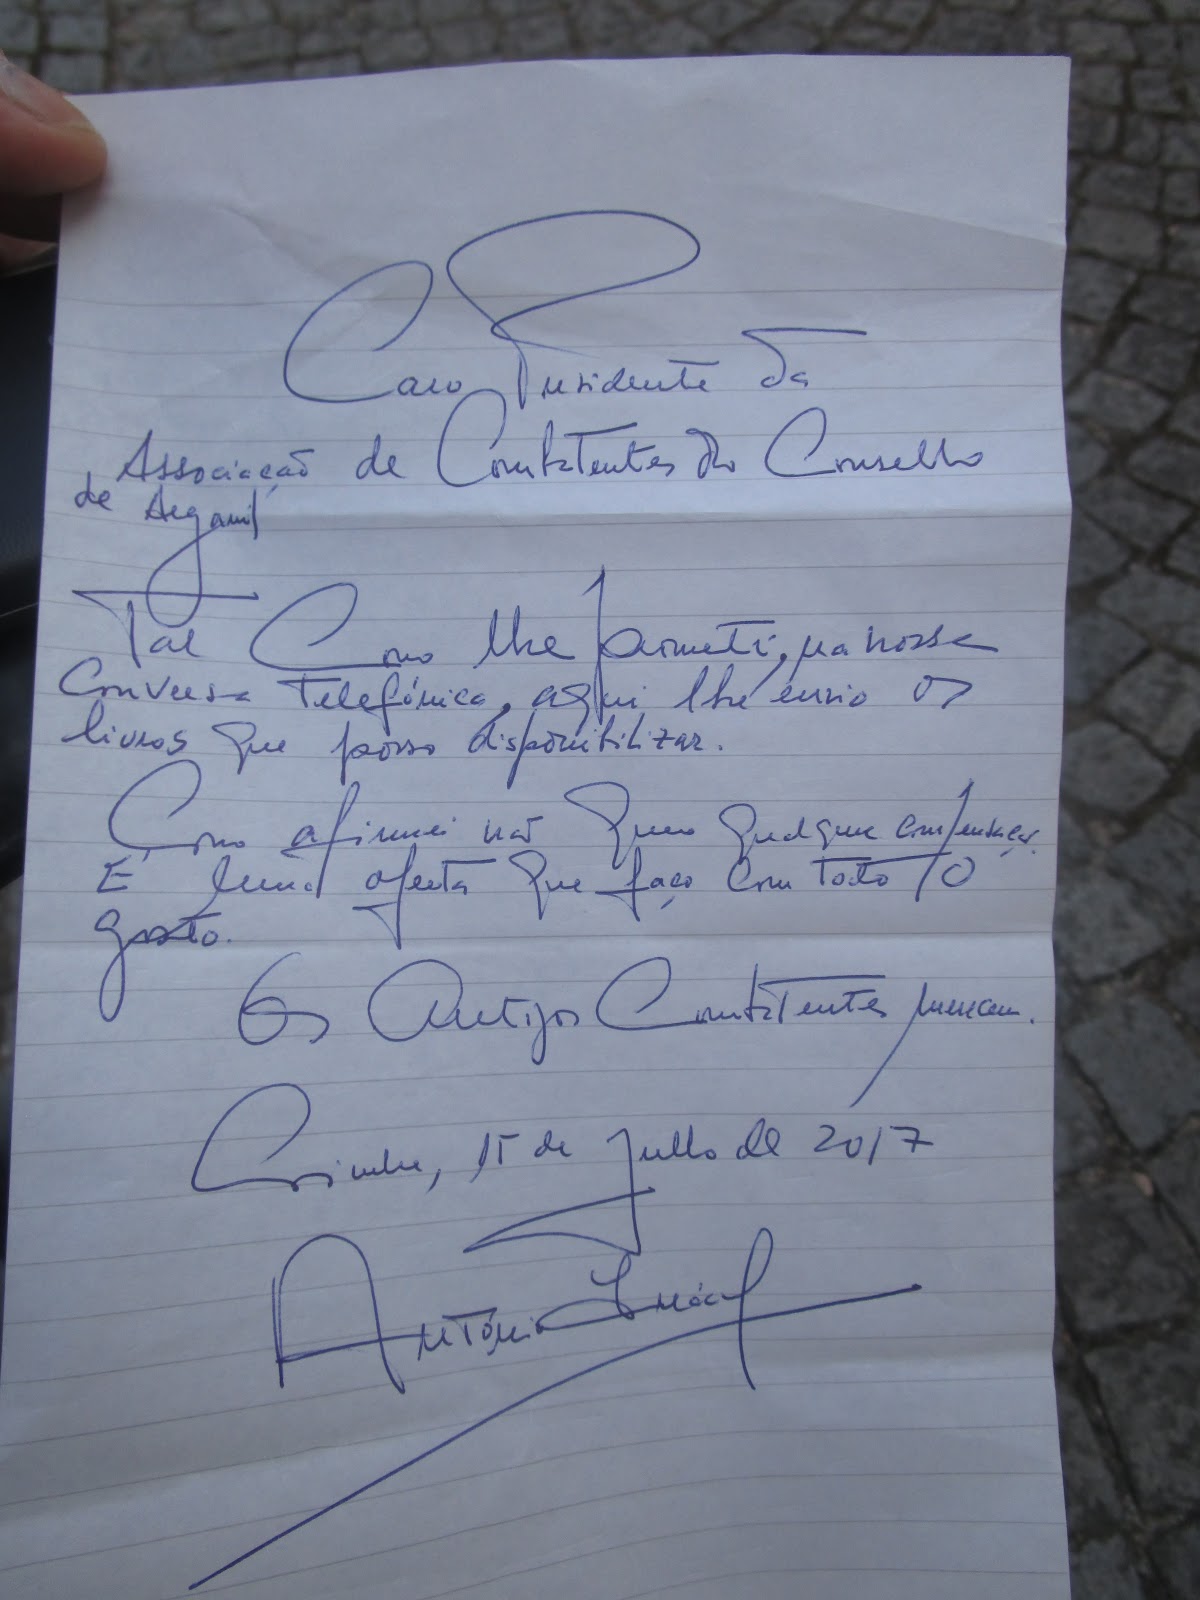 Caro Presidente da
Associação de Combatentes do Conselho
de Arganil
Tal Como lhe prometi, na nossa
Conversa Telefónica, aqui lhe envio os
livros que posso disponibilizar.
Como afirmei não quero qualquer compensação.
É uma oferta que faço com todo o
gosto.
Os Antigos Combatentes merecem.
Coimbra, 15 de Julho de 2017
António